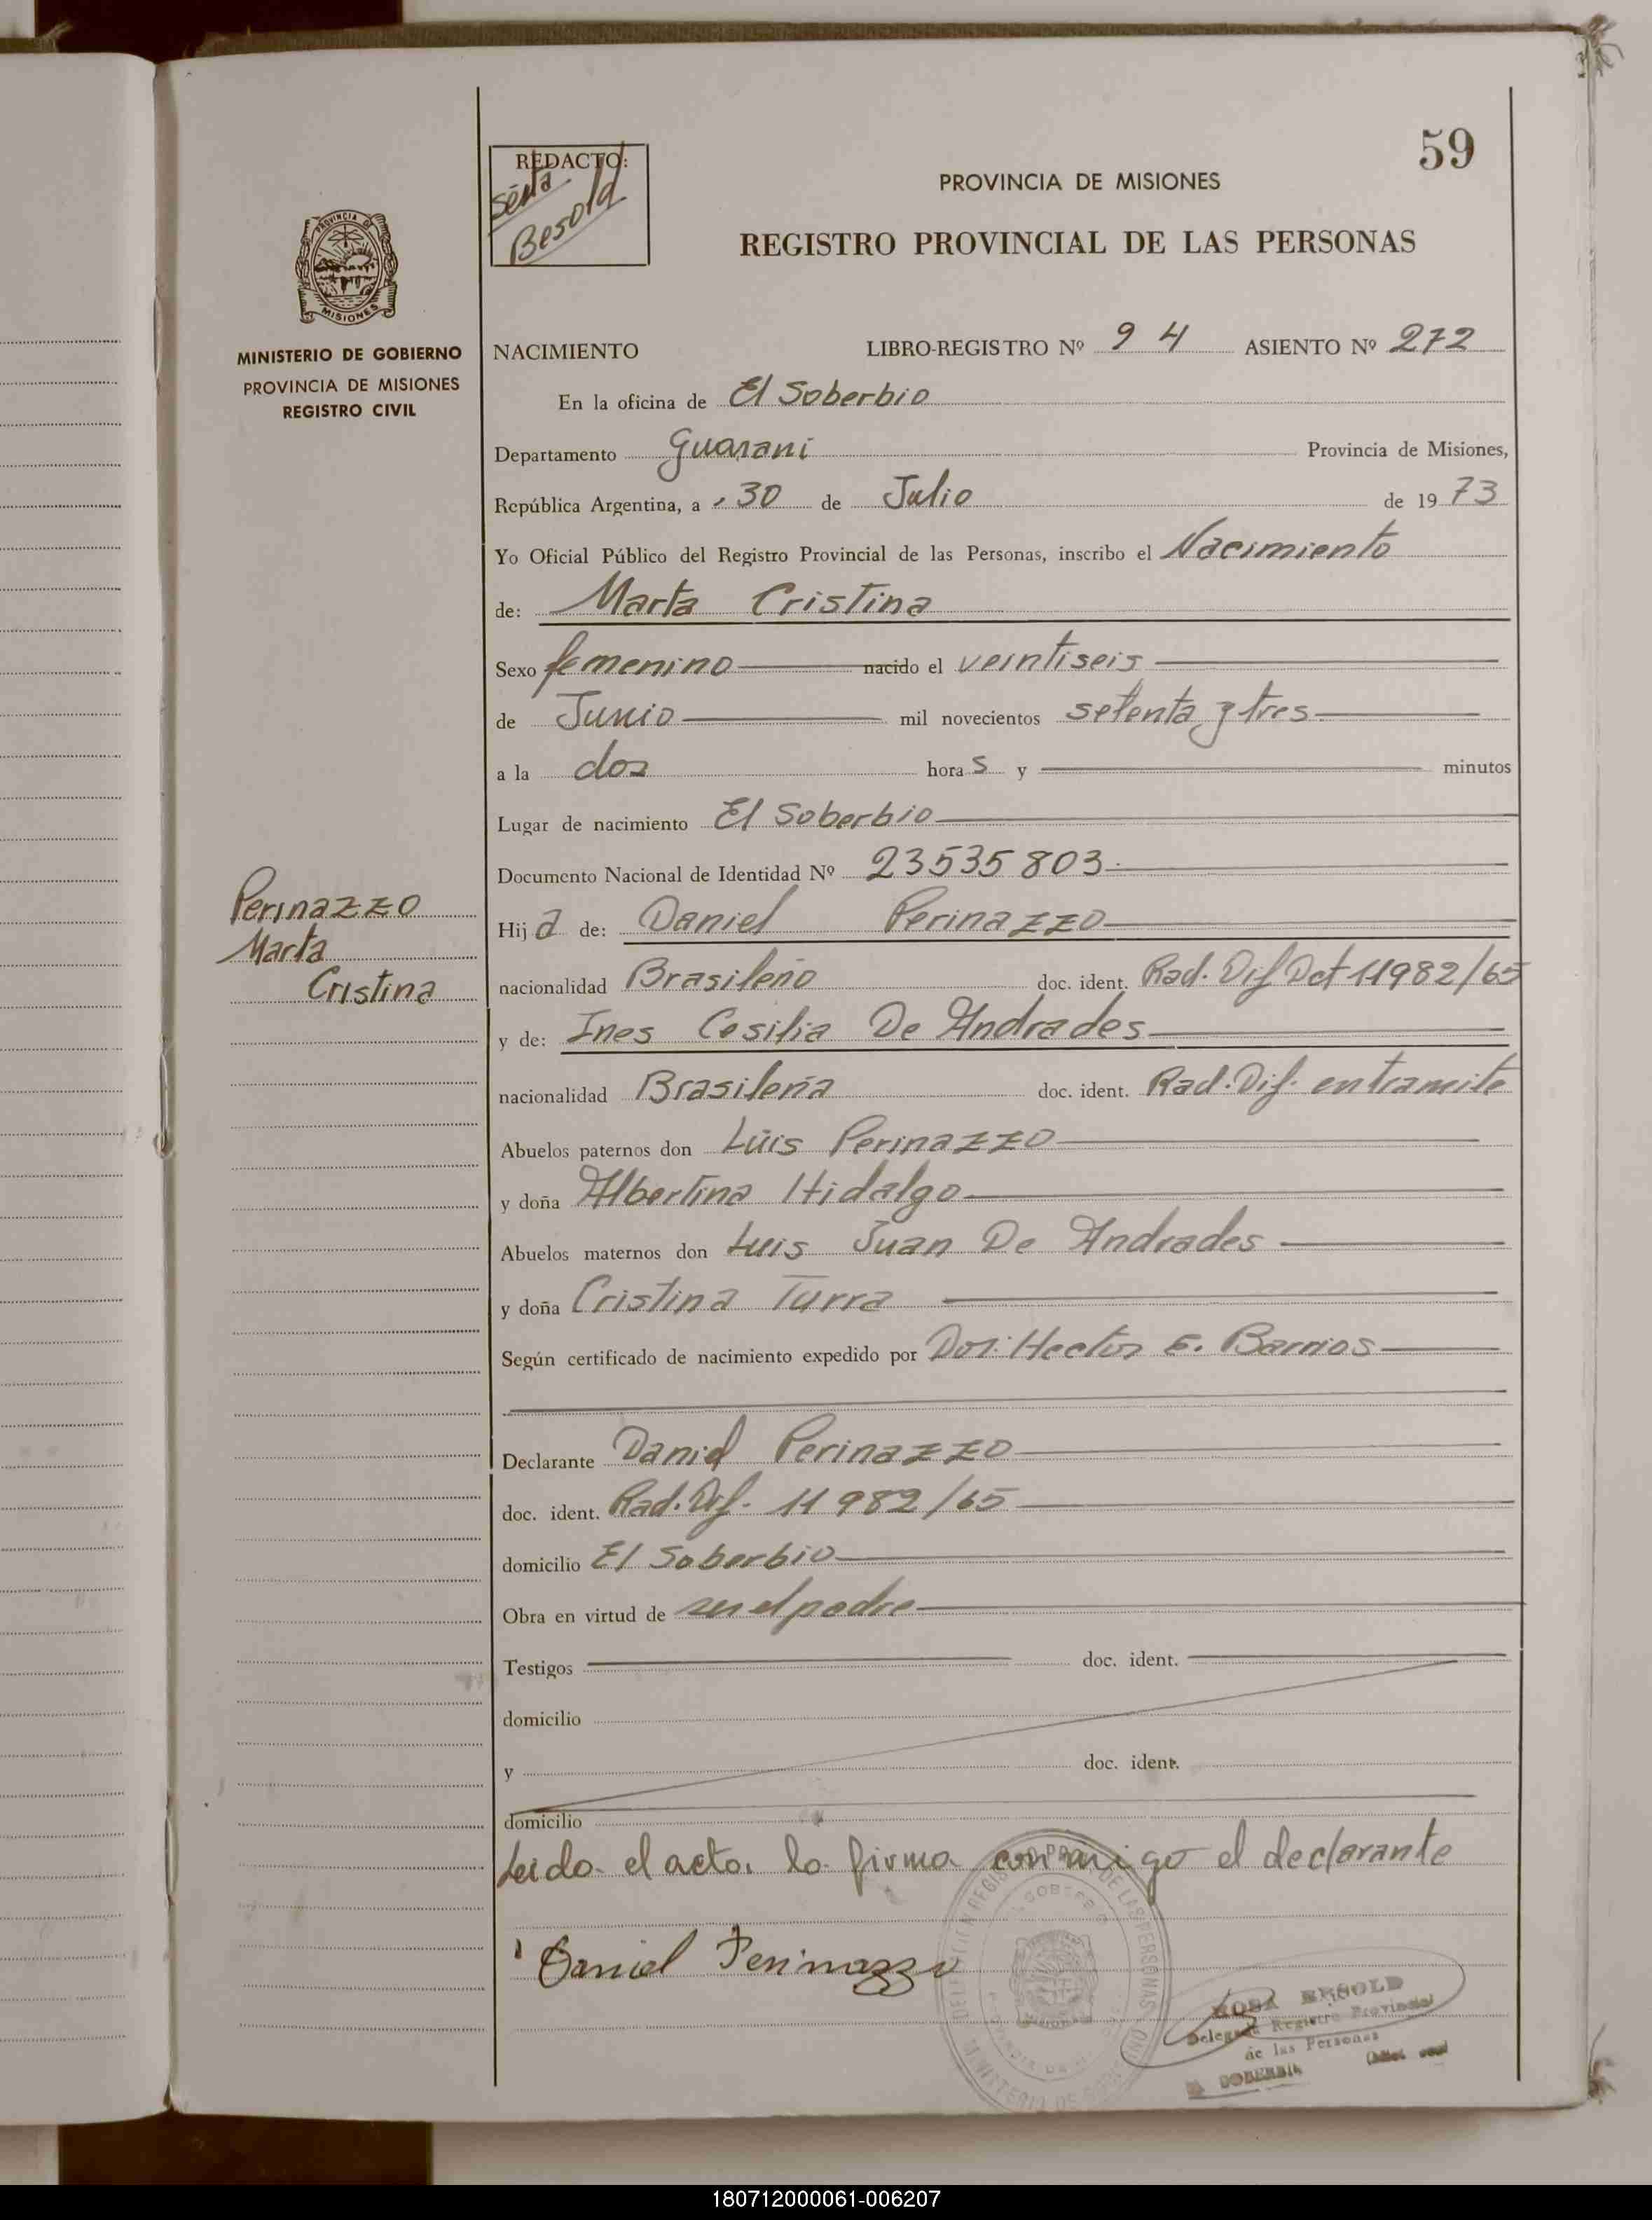 59
REDACTO:
Besold
PROVINCIA DE MISIONES
REGISTRO PROVINCIAL DE LAS PERSONAS
PROVINCIA DE
MISIONES
MINISTERIO DE GOBIERNO
PROVINCIA DE MISIONES
REGISTRO CIVIL
NACIMIENTO LIBRO-REGISTRO Nº 94 ASIENTO Nº 272
En la oficina de El Soberbio
Departamento Guarani Provincia de Misiones,
República Argentina, a 30 de Julio de 1973
Yo Oficial Público del Registro Provincial de las Personas, inscribo el Nacimiento
de: Marta Cristina
Sexo femenino nacido el veintiseis
de Junio mil novecientos setenta y tres
a la dos horas y minutos
Lugar de nacimiento El Soberbio
Documento Nacional de Identidad Nº 23535803
Perinazzo
Marta
Cristina
Hija de: Daniel Perinazzo
nacionalidad Brasileño doc. ident. Rad. Dif Det 11982/65
y de: Ines Cesilia De Andrades
nacionalidad Brasileña doc. ident. Rad. Dif. en tramite
Abuelos paternos don Luis Perinazzo
y doña Albertina Hidalgo
Abuelos maternos don Luis Juan De Andrades
y doña Cristina Turra
Según certificado de nacimiento expedido por Hector E. Barrios
Declarante Daniel Perinazzo
doc. ident. Rad. Dif. 11982/65
domicilio El Soberbio
Obra en virtud de ser el padre
Testigos doc. ident.
domicilio
y doc. ident.
domicilio
Leido el acta, la firma conmigo el declarante
Daniel Perinazzo
ROSA BESOLD
Delegada Registro Provincial
de las Personas
SOBERBIO
180712000061-006207